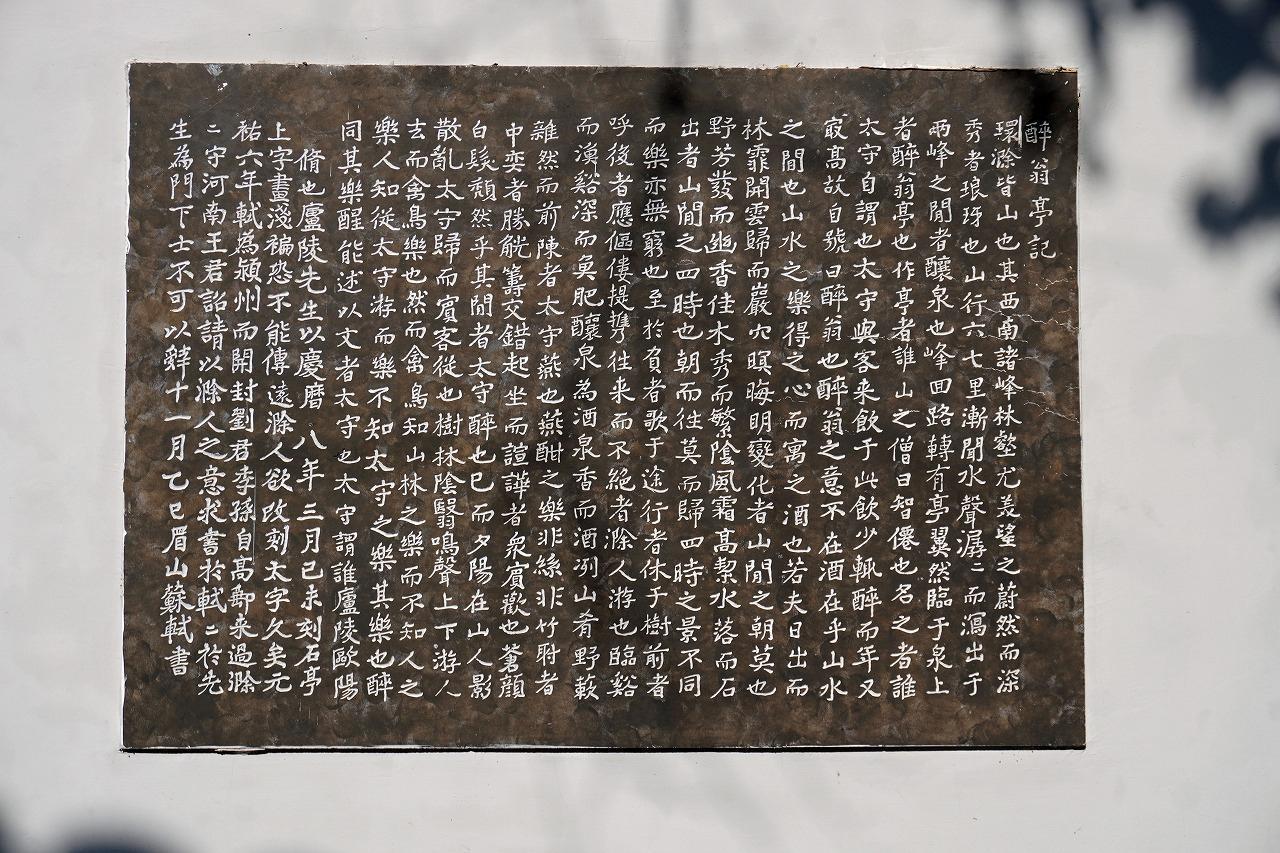 醉翁亭記
環滁皆山也其西南諸峰林壑尤美望之蔚然而深
秀者琅玡也山行六七里漸聞水聲潺〻而瀉出于
兩峰之間者釀泉也峰回路轉有亭翼然臨于泉上
者醉翁亭也作亭者誰山之僧曰智僊也名之者誰
太守自謂也太守與客来飲于此飲少輒醉而年又
㝡高故自號曰醉翁也醉翁之意不在酒在乎山水
之間也山水之樂得之心而寓之酒也若夫日出而
林霏開雲歸而巖穴暝晦明變化者山間之朝莫也
野芳發而幽香佳木秀而繁陰風霜高潔水落而石
出者山間之四時也朝而往莫而歸四時之景不同
而樂亦無窮也至於負者歌于途行者休于樹前者
呼後者應傴僂提攜往来而不絕者滁人游也臨谿
而漁谿深而魚肥釀泉為酒泉香而酒冽山肴野蔌
雜然而前陳者太守燕也燕酣之樂非絲非竹射者
中奕者勝觥籌交錯起坐而諠譁者衆賓歡也蒼顔
白髮頹然乎其間者太守醉也已而夕陽在山人影
散亂太守歸而賓客從也樹林陰翳鳴聲上下游人
去而禽鳥樂也然而禽鳥知山林之樂而不知人之
樂人知從太守游而樂不知太守之樂其樂也醉
同其樂醒能述以文者太守也太守謂誰廬陵歐陽
脩也廬陵先生以慶曆八年三月己未刻石亭
上字畫淺褊恐不能傳遠滁人欲改刻太字久矣元
祐六年軾為潁州而開封劉君季孫自高郵来過滁
〻守河南王君詔請以滁人之意求書於軾〻於先
生為門下士不可以辭十一月乙巳眉山蘇軾書